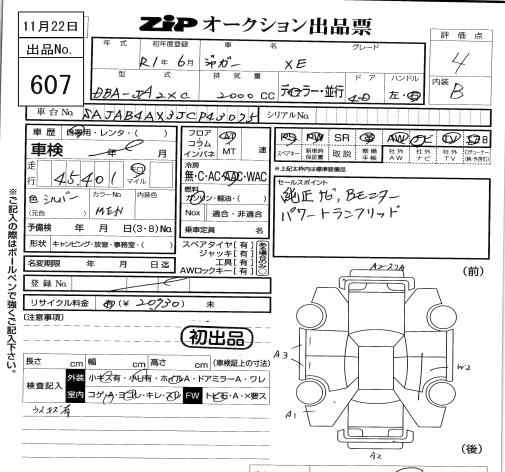 11月22日
ZIP オークション出品票
出品No.
607
評価点
4
内装
B
年式 初年度登録 車名 グレード
R1年6月 ジャガー XE
型式 排気量 ドア ハンドル
DBA-JA2XC 2000CC ディーラー・並行 4D 左・右
車台No. SAJAB4AX3JCP43095 シリアルNo.
車歴 自家用・レンタ・( )
車検 年 月
走行 45,401 km マイル
色 シルバー カラーNo. 内装色
(元色) MEN
予備検 年 月 日(3・8)No.
形状 キャンピング・放宣・事務室・( )
名変期限 年 月 日迄
登録No.
リサイクル料金 (¥ 20930) 未
フロア コラム インパネ AT MT 速
冷房
無・C・AC・AAC・WAC
燃料
ガソリン・軽油・( )
Nox 適合・非適合
乗車定員 名
スペアタイヤ[有]
ジャッキ[有]
工具[有]
AWロックキー[有]
PS PW SR 革 AW ナビ TV エアB
スペアキー 新車時保証書 取説 整備手帳 社外AW 社外ナビ 社外TV
※上記太枠内は標準装備品
セールスポイント
純正ナビ, Bモニター
パワートランクリッド
[注意事項]
初出品
長さ cm 幅 cm 高さ cm (車検証上の寸法)
検査記入 外装 小キズ有・小凹有・ホイルA・ドアミラーA・ワレ
室内 コゲA・ヨゴレ・キレ・スレ FW トビ石・A・X要ス
うすキズ有
(前)
A3
A1
W2
A2
(後)
※ご記入の際はボールペンで強くご記入下さい。